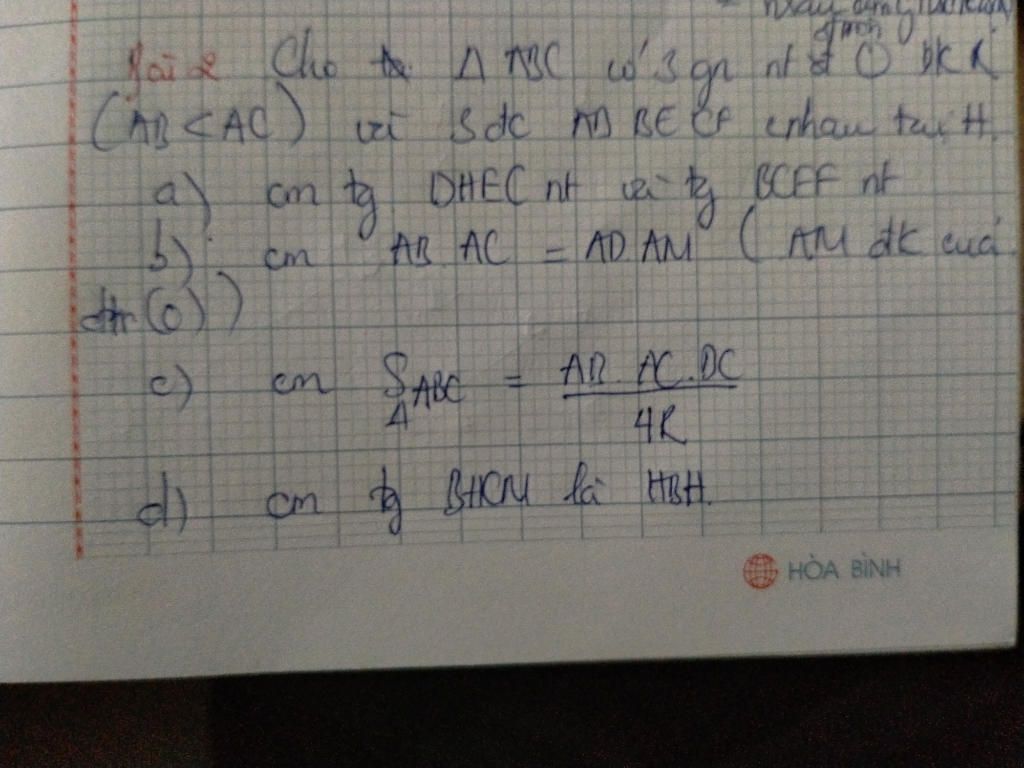 Bài 2 Cho Δ ABC có 3 gn nt đ BK R
(AB < AC) với 3 đc AD BE CF cnhau tại H.
a) cm tg DHEC nt và tg BCEF nt
b) cm AB. AC = AD. AM ( AM đk của
đtr (O))
c) cm SΔABC = AB. AC. BC / 4R
d) cm tg BHCM là HBH.
HÒA BÌNH